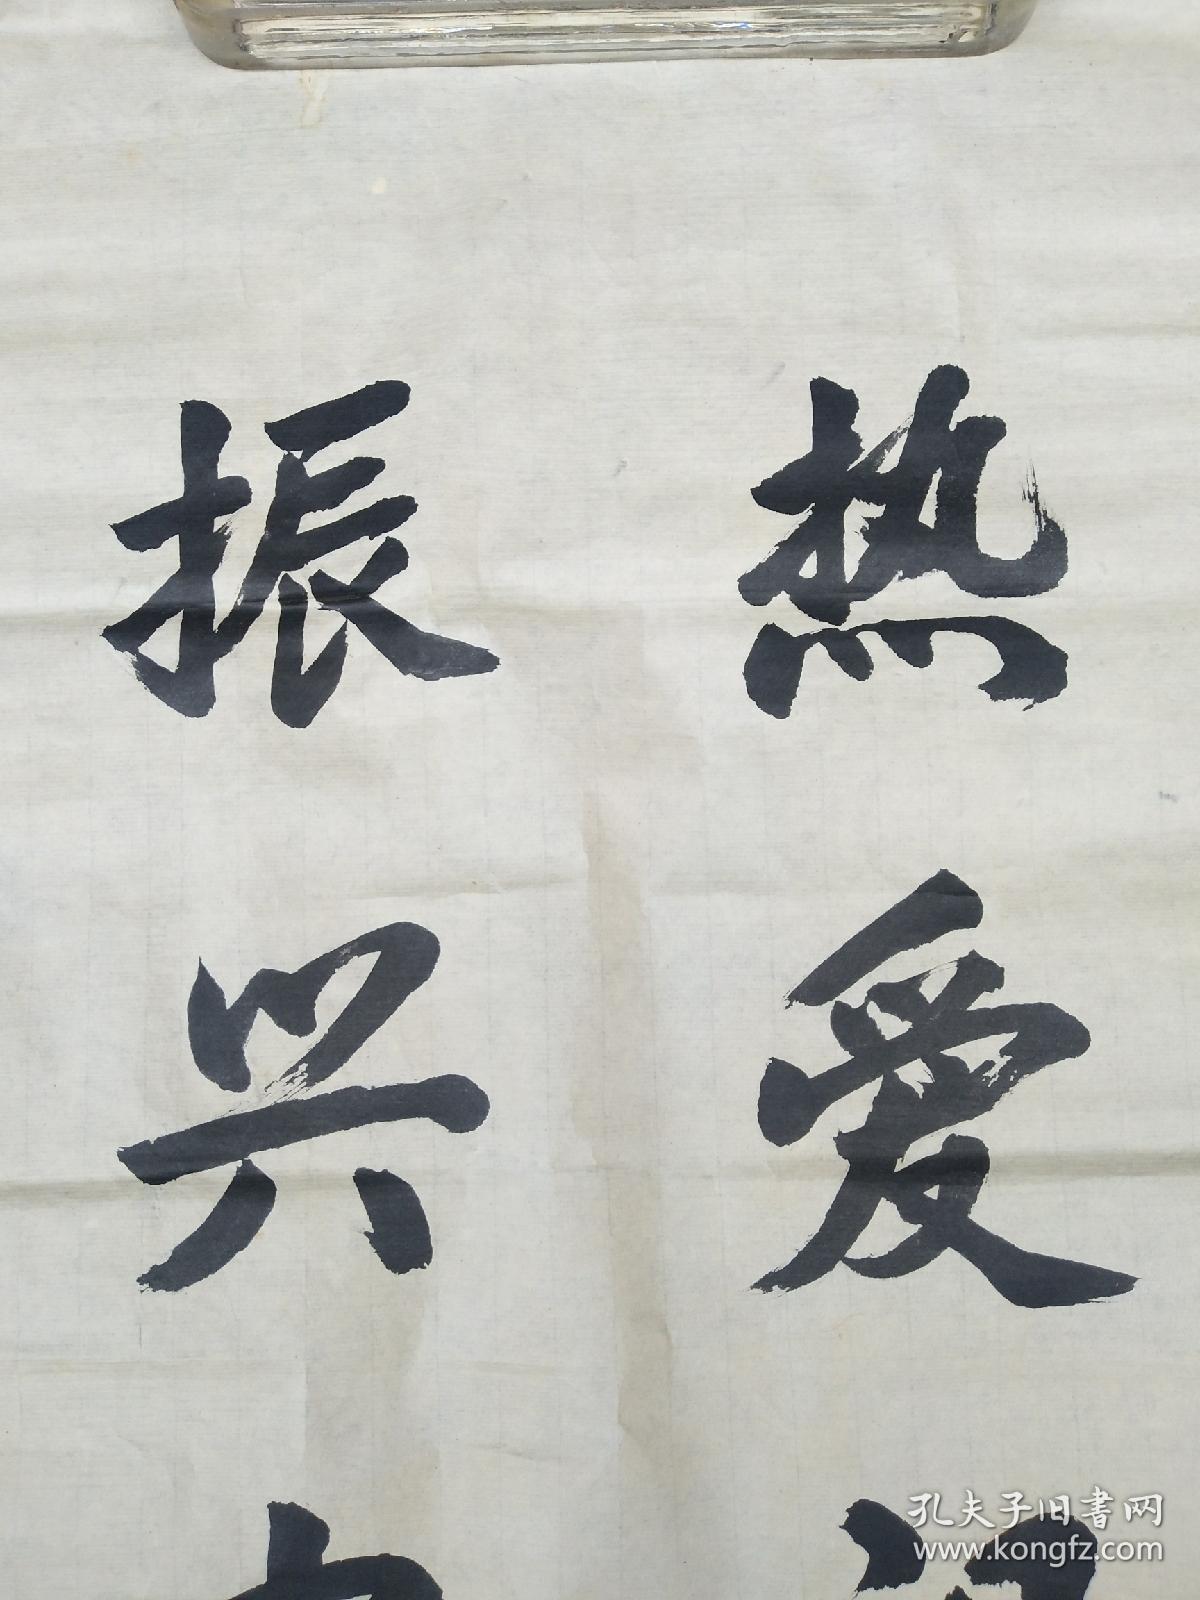 热爱
振兴
孔夫子旧书网
www.kongfz.com